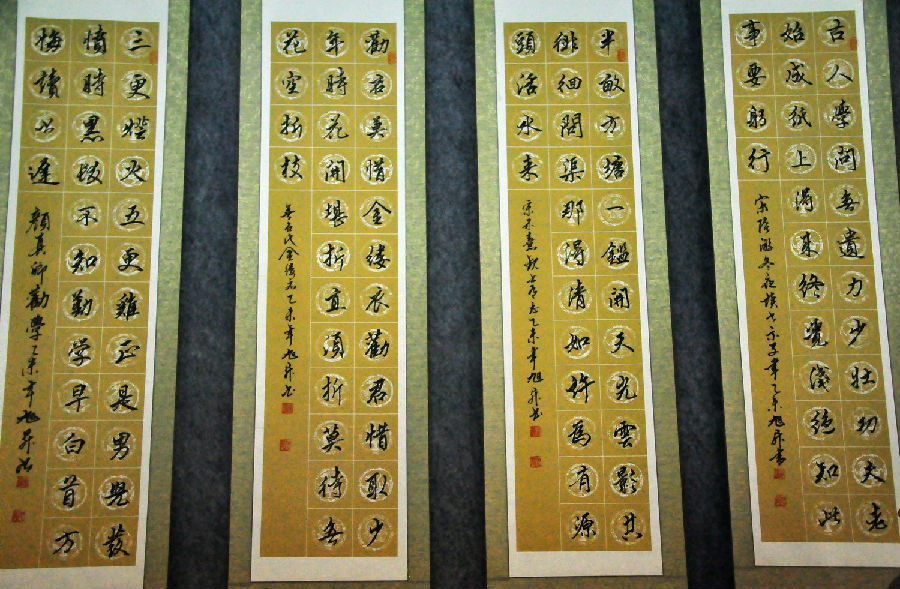 古人學問無遺力少壯功夫老
始成紙上得來終覺淺絕知此
事要躬行
宋陸游冬夜讀書示子聿乙未旭昇書
半畝方塘一鑑開天光雲影共
徘徊問渠那得清如許為有源
頭活水来
宋朱熹觀书有感乙未年旭昇书
勸君莫惜金縷衣勸君惜取少
年時花開堪折直須折莫待無
花空折枝
無名氏金縷衣乙未年旭昇书
三更燈火五更雞正是男兒發
憤時黑髮不知勤學早白首方
悔讀书遲
顏真卿勸學乙未年旭昇书